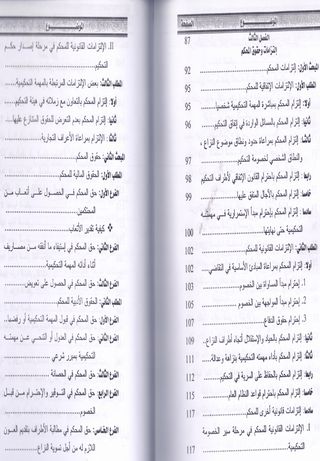 الموضوع الصفحة
الفصل الثالث 87
إلتزامات وحقوق المحكم
المبحث الأول: إلتزامات المحكم 92
المطلب الأول: الإلتزامات الإتفاقية للمحكم 95
أولا: إلتزام المحكم بمباشرة المهمة التحكيمية شخصيا 95
ثانيا: إلتزام المحكم بالمسائل الواردة في إتفاق التحكيم 96
ثالثا: إلتزام المحكم بمراعاة حدود ونطاق موضوع النزاع ،
والنطاق الشخصي لخصومة التحكيم 97
رابعا: إلتزام المحكم بإحترام القانون الإتفاقي لأطراف التحكيم 98
خامسا: إلتزام المحكم بالآجال المتفق عليها 99
سادسا: إلتزام المحكم بإحترام مبدأ الإستمرارية في مهمته
التحكيمية حتى نهايتها 100
المطلب الثاني: الإلتزامات القانونية للمحكم 100
أولا: إلتزام المحكم بمراعاة المبادئ الأساسية في التقاضي 102
1. إحترام مبدأ المساواة بين الخصوم 103
2. إحترام مبدأ المواجهة بين الخصوم 105
3. إحترام حقوق الدفاع 107
ثانيا: إلتزام المحكم بالحياد والإستقلال تجاه أطراف النزاع 109
ثالثا: إلتزام المحكم بأداء مهمته التحكيمية بنزاهة وعدالة 111
رابعا: إلتزام المحكم بالحفاظ على السرية في التحكيم 112
خامسا: إلتزام المحكم بإحترام قواعد النظام العام 115
سادسا: إلتزامات قانونية أخرى للمحكم 117
I. الإلتزامات القانونية للمحكم في مرحلة سير الخصومة
التحكيمية 117
الموضوع
II. الإلتزامات القانونية للمحكم في مرحلة إصدار حكم
التحكيم
المطلب الثالث: بعض الإلتزامات المرتبطة بالمهمة التحكيمية
أولا: إلتزام المحكم بالتعاون مع زملائه في هيئة التحكيم
ثانيا: إلتزام المحكم بعدم التعرض للحقوق المتنازع عليها
ثالثا: إلتزام المحكم بمراعاة الأعراف التجارية
المبحث الثاني: حقوق المحكم
المطلب الأول: الحقوق المالية للمحكم
الفرع الأول: حق المحكم في الحصول على أتعاب من
المحتكمين
كيفية تقدير الأتعاب
الفرع الثاني: حق المحكم في إستيفاء ما أنفقه من مصاريف
أثناء أدائه المهمة التحكيمية
الفرع الثالث: حق المحكم في الحصول على تعويض
المطلب الثاني: الحقوق الأدبية للمحكم
الفرع الأول: حق المحكم في قبول المهمة التحكيمية أو رفضها
الفرع الثاني: حق المحكم في العدول أو التنحي عن مهمته
التحكيمية بمبرر شرعي
الفرع الثالث: حق المحكم في الحصانة
الفرع الرابع: حق المحكم في التوقير والإحترام من قبل
الخصوم
الفرع الخامس: حق المحكم في مطالبة الأطراف بتقديم العون
اللازم له من أجل تسوية النزاع